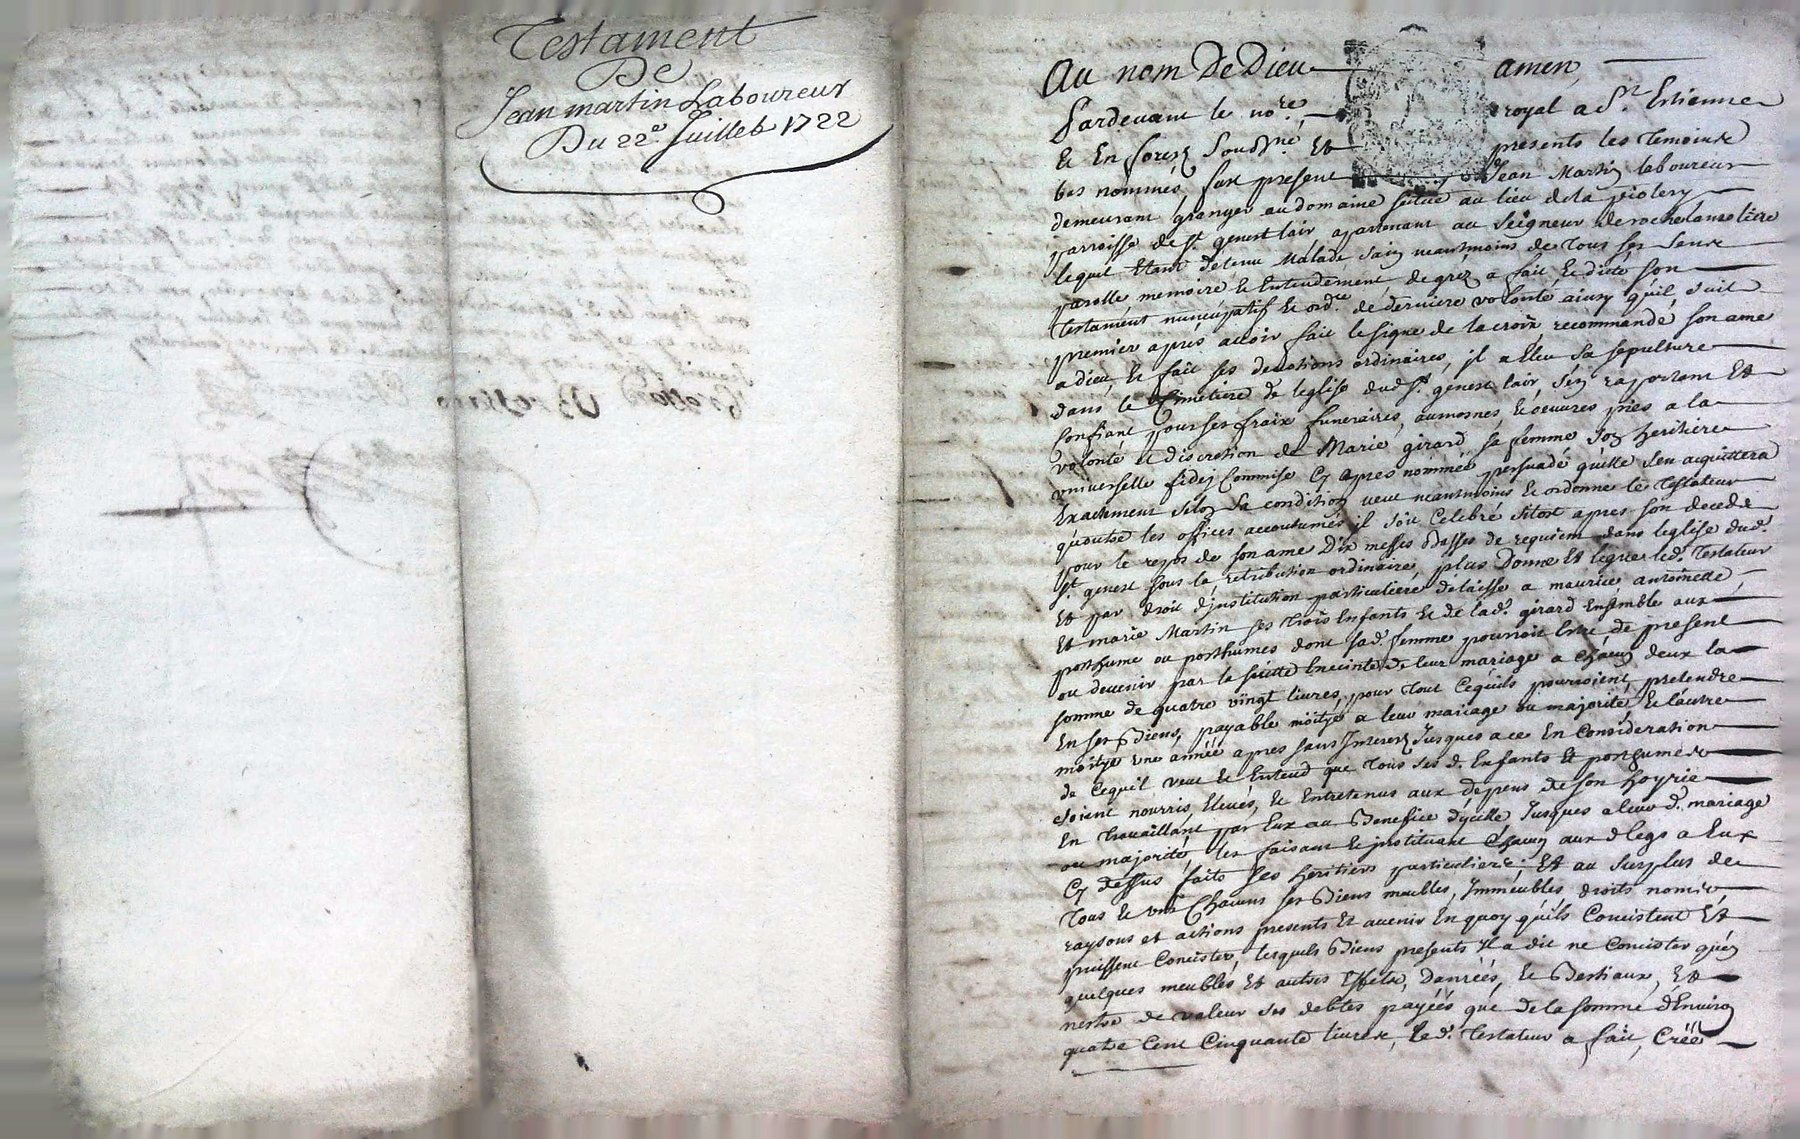 Testament
De
Jean martin Laboureur
Du 22e. Juillet 1722
Au nom De Dieu amen,
Pardevant le nore. royal a St. Estienne
Et En forez Soussné. Et presents les temoins
bas nommés, fut present Jean Martin laboureur
demeurant granger au domaine scitué au lieu dela piolery
parroisse de St. genest lair apartenant au Seigneur de rochetanoliere
lequel Etant detenu Malade, Sain neantmoins de tous ses Sens
parolle memoire & Entendement, de gréz a fait & dicté son
Testament nuncupatif & ordre. de derniere volonté ainsy quil suit
premier aprés avoir fait le signe de la croix recommandé son ame
a dieu, & fait ses devotions ordinaires, jl a Eleu Sa sepulture
dans le Cimetiere de leglise dud. St. genest lair, s'en raportant Et
confiant pour ses fraix funeraires, aumosnes, & oeuvres pies a la
volonté & discretion de Marie girard sa femme son heritiere
vniverselle fidej Commise Cy apres nommée persuadé quelle s'en acquittera
Exactement selon sa condition veut neantmoins & ordonne le Testateur
quoutre les offices accoutumés jl soit Celebré sitost apres son decede
pour le repos de son ame Dix messes Basses de requiem dans leglise dud.
St. genest sous la retribution ordinaire, plus Donne Et legue led. Testateur
Et par droit d'jnstitution particuliere delaisse a maurice antoinete,
Et marie Martin ses trois Enfants & de lad. girard Ensemble aux
posthume ou posthumes dont sad. femme pourroit Etre, de present
ou devenir par la suitte Enceinte, de leur mariage a Chacun deux la
somme de quatre vingt livres, pour tout Cequils pourroient pretendre
En ses Biens, payable moitye a leur mariage ou majorité, & lautre
moitye vne année apres sans Jnterez Jusques a ce En Consideration
de Cequil veut & Entend que tous ses d. Enfants Et posthumes
soient nourris, Elevés, & Entretenus aux depens de son hoyrie
En travaillant par Eux au Benefice d'ycelle Jusques a leur d. mariage
ou majorité, les faisant & jnstituant Chacun aux d legs a Eux
Cy dessus faits ses heritiers particuliers; Et au surplus de
tous & vns Chacuns ses Biens meubles, Jmmeubles droits noms
raysons et actions presents Et avenir En quoy quils Concistent Et
puissent Concister, lesquels Biens presents Il a dit ne Concister quen
quelques meubles, Et autres Effets, danrées, & Bestiaux, Et
nestre de valeur ses debtes payéés que de la somme d'Environ
quatre Cent Cinquante livres, Led. Testateur a fait, Créé